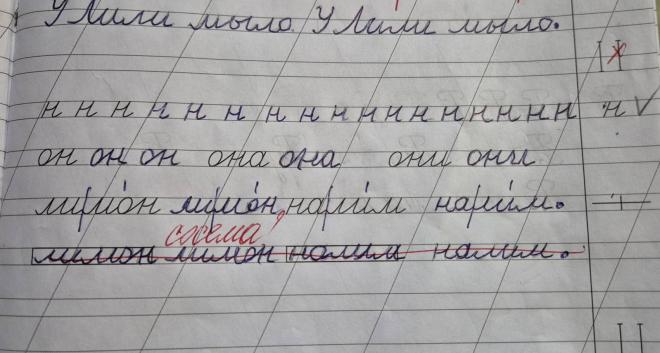 У Лили мыло. У Лили мыло.
н н н н н н н н н н н н н н н н н н
он он он она она они они
лимо́н лимо́н, нали́м нали́м.
схема!
лимон лимон налим налим.